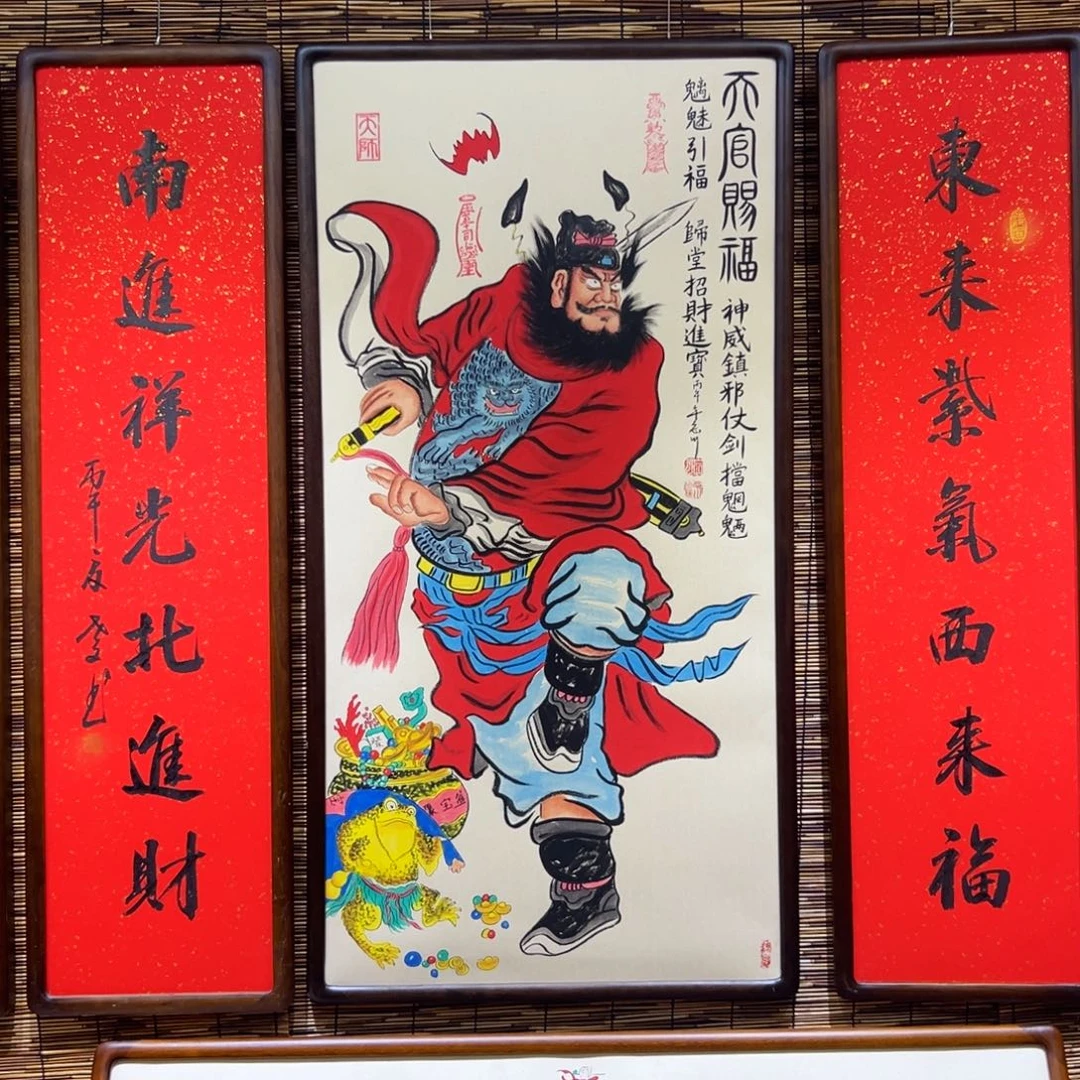 東来紫氣西来福
天官賜福 神威鎮邪仗剑擋魍魎
魑魅引福 歸堂招財進寳 丙午年
天師
宝盆
南進祥光北進財
丙午